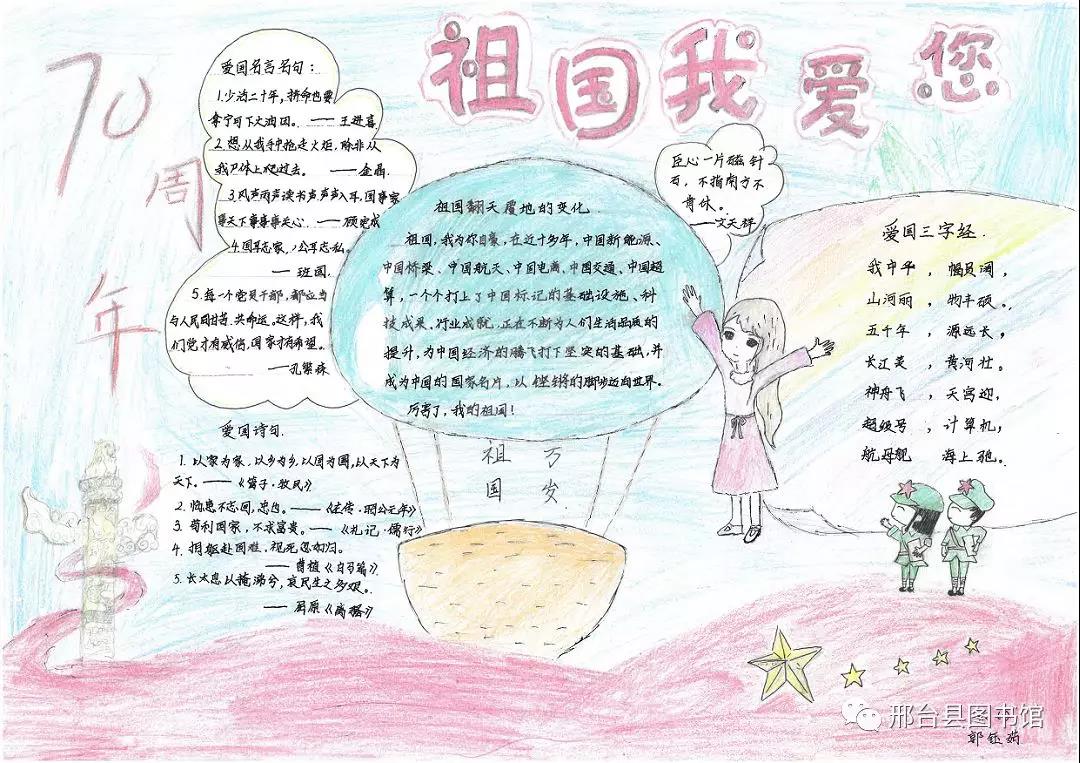 祖国我爱您
70周年
爱国名言名句:
1.少活二十年,拼命也要
拿下大油田。——王进喜
2.想从我手中抢走火炬,除非从
我身体上爬过去。——金晶
3.风声雨声读书声声声入耳,国事家
事天下事事事关心——顾宪成
4.国耳忘家,公耳忘私。
——班固
5.每一个党员干部,都应当
与人民同甘苦、共命运。这样,我
们党才有威信,国家才有希望。
——孔繁森
爱国诗句.
1.以家为家,以乡为乡,以国为国,以天下为
天下。——《管子·牧民》
2.临患不忘国,忠也。——《左传·昭公元年》
3.苟利国家,不求富贵。——《礼记·儒行》
4.捐躯赴国难,视死忽如归。
——曹植《白马篇》
5.长太息以掩涕兮,哀民生之多艰。
——屈原《离骚》
祖国翻天覆地的变化
祖国,我为你自豪,在近十多年,中国新能源、
中国桥梁、中国航天、中国电商、中国交通、中国超
算,一个个打上了中国标记的基础设施、科
技成果、行业成就,正在不断为人们生活品质的
提升,为中国经济的腾飞打下坚实的基础,并
成为中国的国家名片,以铿锵的脚步迈向世界。
厉害了,我的祖国!
祖国万岁
臣心一片磁针
石,不指南方不
肯休。
——文天祥
爱国三字经.
我中华,幅员阔,
山河丽,物丰硕。
五千年,源远长,
长江美,黄河壮。
神舟飞,天宫迎,
超级号,计算机,
航母舰 海上驰。
邢台县图书馆